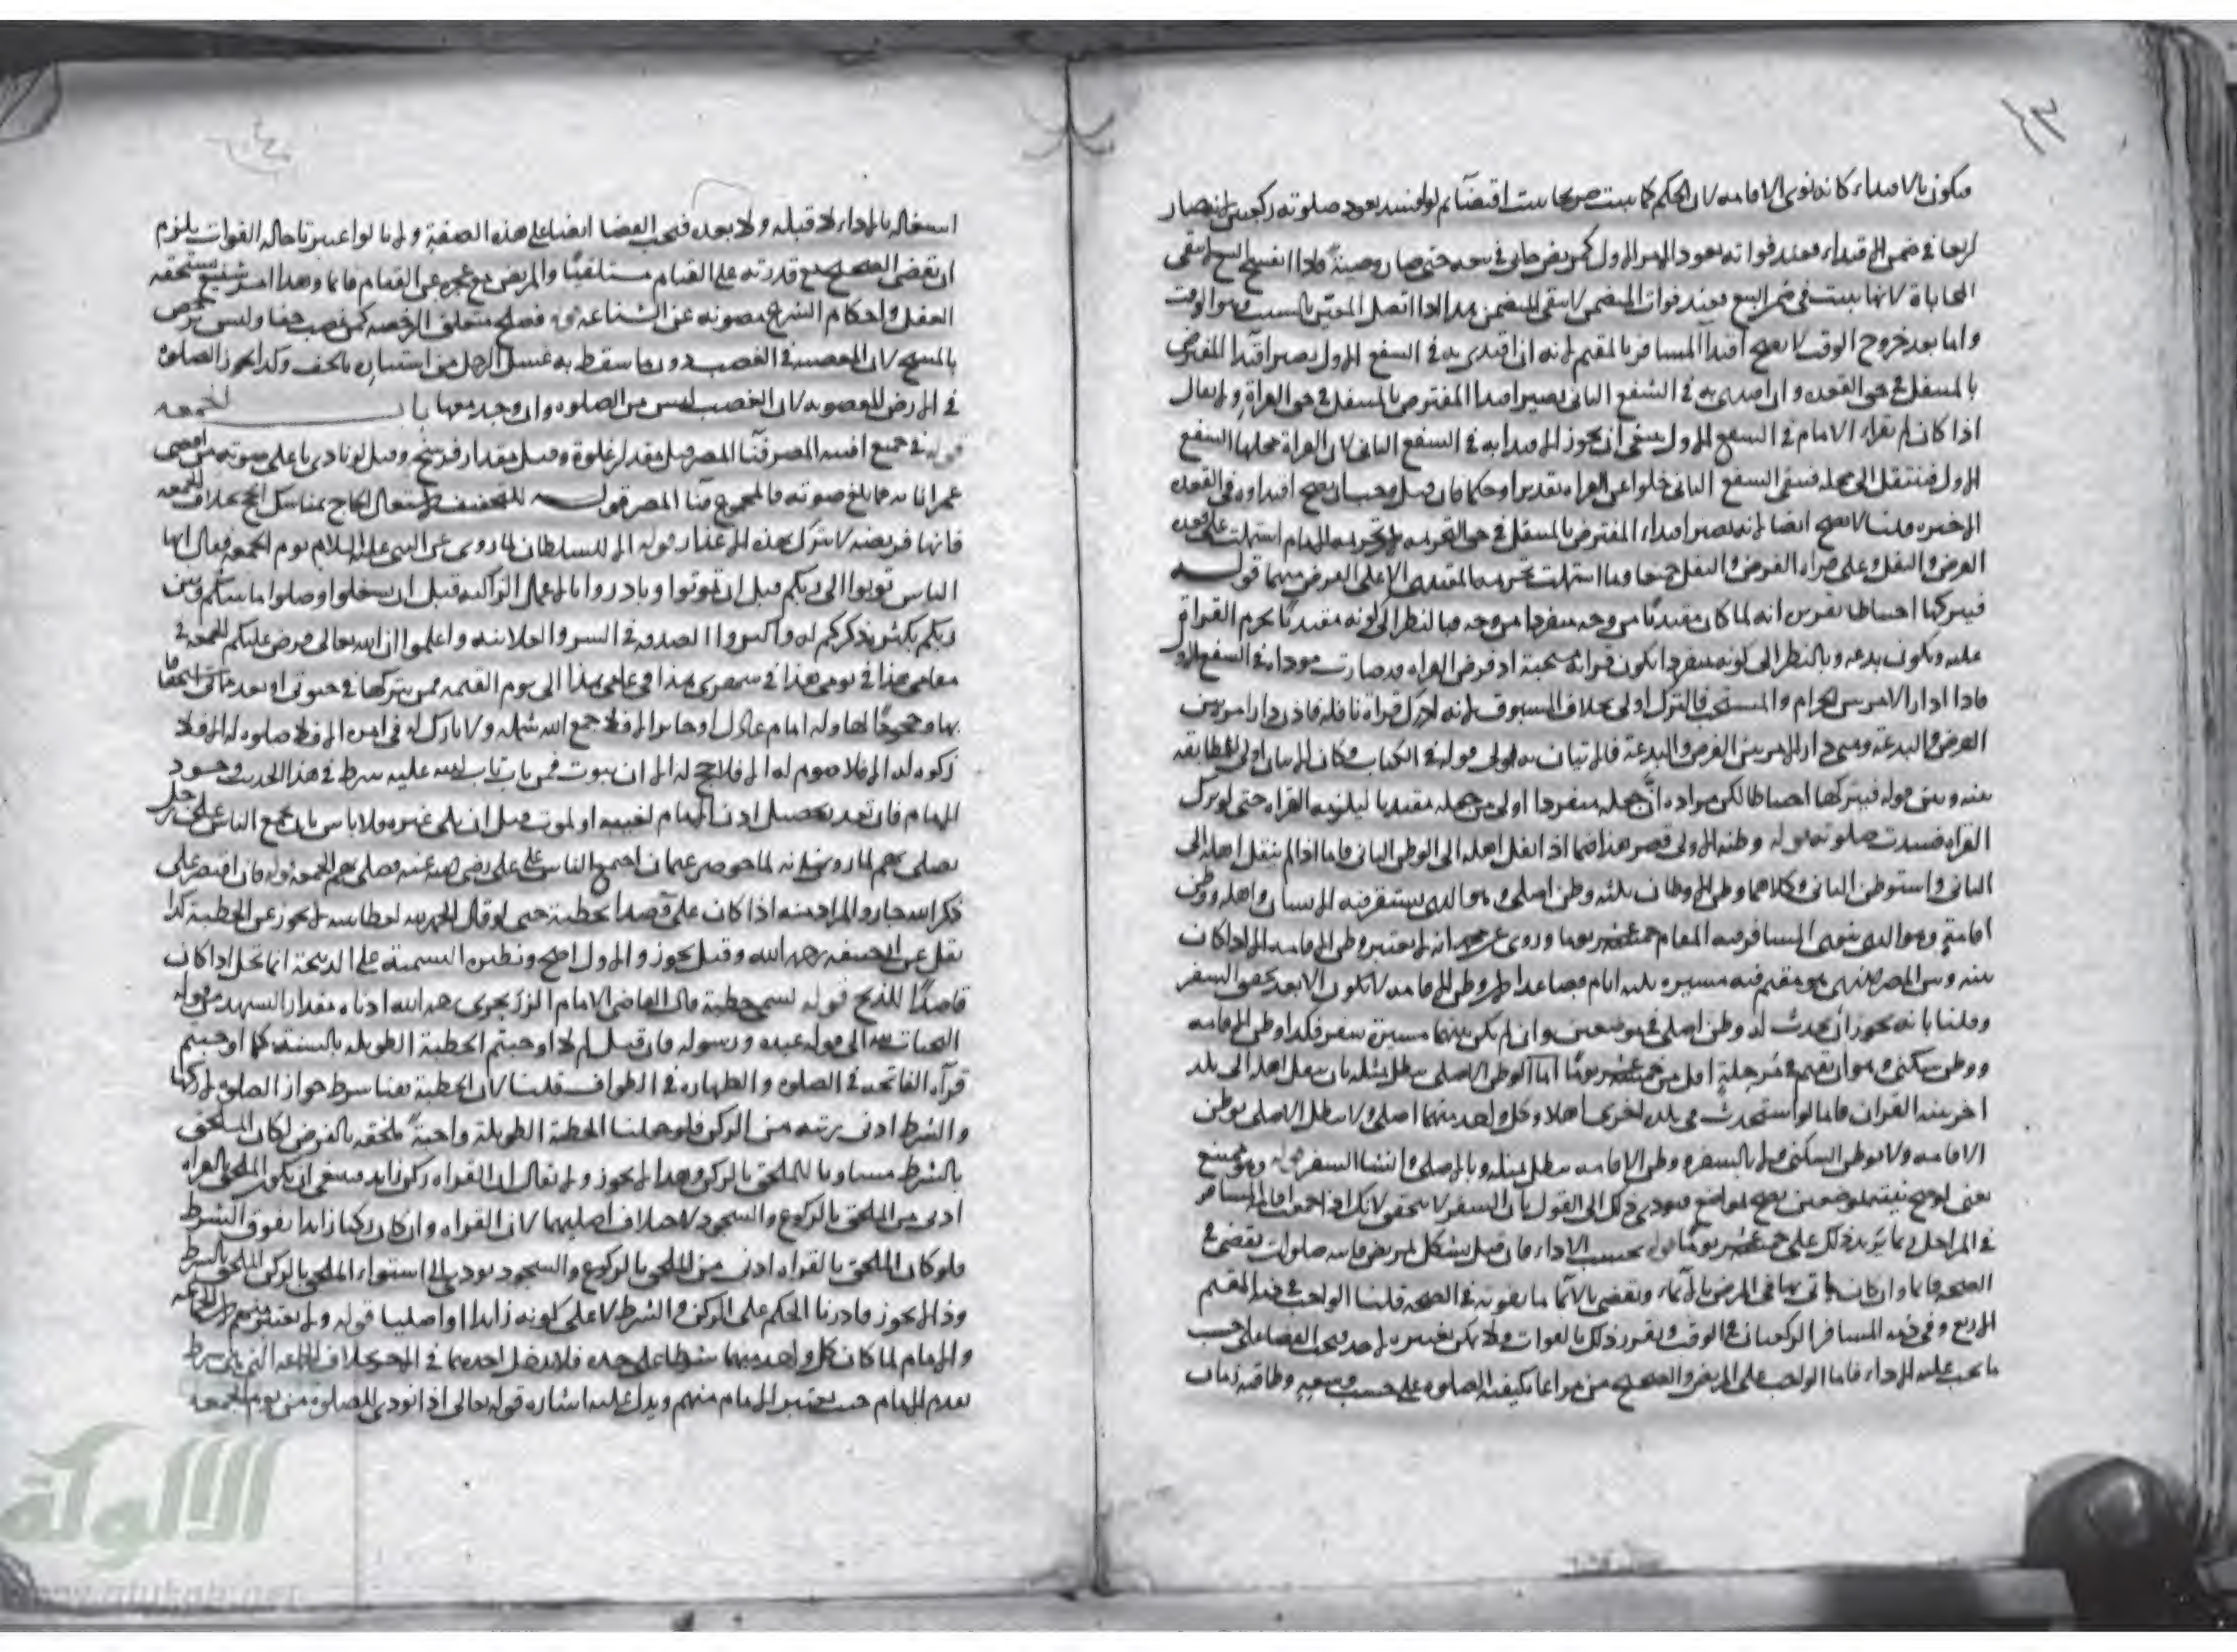 فيكون بالاقتداء كانه نوى الاقامه لان الحكم كما يثبت صريحا يثبت اقتضاء ثم لو افسد يعود صلوته ركعتين لانه صار
اربعا في ضمن الاقتداء فعند فواته يعود الامر الاول كمريض حابى في بيعه حتى صار وصية فاذا انفسخ البيع لا تبقى
المحاباة لانها ثبتت في ضمن البيع فعند فوات المتضمن لا يبقى المتضمن هذا اذا اتصل المغير بالسبب وهو الوقت
واما بعد خروج الوقت لا يصح اقتداء المسافر بالمقيم لانه ان اقتدى به في الشفع الاول يصير اقتداء المفترض
بالمتنفل في حق القعده وان اقتدى به في الشفع الثاني يصير اقتداء المفترض بالمتنفل في حق القراة ولا يقال
اذا كان لم يقراء الامام في الشفع الاول ينبغى ان يجوز الاقتداء به في الشفع الثاني لان القراة محلها الشفع
الاول فتنتقل الى محله فبقى الشفع الثاني خلوا عن القراه تقديرا وحكما فان قيل وجب ان يصح اقتداوه في القعده
الاخيره قلنا لا يصح ايضا لانه يصير اقتداء المفترض بالمتنفل في حق التحريمه لان تحريمه الامام اشتملت على قعده
الفرض والنفل وعلى قراه الفرض والنفل جميعا وما اشتملت تحريمه المقتدى الا على الفرض منهما قوله
فيتركها احتياطا تقريره انه لما كان مقتديا من وجه منفردا من وجه فبالنظر الى كونه مقتديا يحرم القراة
عليه ويكون بدعه وبالنظر الى كونه منفردا يكون قراته مستحبة اذ فرض القراه قد صارت موداه في الشفع الاول
فاذا دار الامر بين الحرام والمستحب فالترك اولى بخلاف المسبوق لانه ادرك قراة نافله فاذن دار امره بين
الفرض والبدعة ومتى دار الامر بين الفرض والبدعة فالاتيان به اولى قوله في الكتاب فكان الاتيان اولى لا مطابقه
بينه وبين قوله فيتركها احتياطا لكن مراده ان جعله منفردا اولى من جعله مقتديا ليلزمه القراه حتى لو ترك
القراه فسدت صلوته قوله وطنه الاولى قصر هذا فيما اذا نقل اهله الى الوطن الثاني فاما اذا لم ينقل اهله الى
الثاني واستوطن الثاني فكلاهما وطن الاوطان ثلثه وطن اصلى وهو الذي يستقر فيه الانسان واهله ووطن
اقامة وهو الذي ينوى المسافر فيه المقام خمسة عشر يوما وروى عن محمد انه لا يعتبر وطن الاقامه الا اذا كان
بينه وبين المصر الذي هو مقيم فيه مسيره ثلثه ايام فصاعدا لان وطن الاقامه لا يكون الا بعد تحقق السفر
وقلنا بانه يجوز ان يحدث له وطن اصلى في موضعين وان لم يكن بينهما مسيرة سفر فكذا وطن الاقامه
ووطن سكنى وهو ان يقيم في مرحلة اقل من خمسة عشر يوما اما الوطن الاصلى يبطل بمثله بان ينقل اهله الى بلد
اخر بنية القرار فاما لو استحدث في بلد اخرى اهلا وكل واحد منهما اصلى ولا يبطل الاصلى بوطن
الاقامه ولا بوطن السكنى ولا بالسفر ووطن الاقامه يبطل بمثله وبالاصلى وانشا السفر قوله وهو ممتنع
يعنى لو صح نيته لموضعين يصح لمواضع فيودى ذلك الى القول بان السفر لا يتحقق لانك اذا جمعت اقامة المسافر
في المراحل ربما يزيد ذلك على خمسة عشر يوما قوله بحسب الاداء فان قيل يشكل بمريض فاته صلوات يقضى في
الصحه قايما وان كان ياتى بها في المرض بالايماء ويقضى بالايما ما يفوته في الصحه قلنا الواجب في ذمه المقيم
الاربع وفي ذمه المسافر الركعتان في الوقت ويتقرر ذلك بالفوات ولا يمكن تغييره لاحد فيجب القضا على حسب
ما يجب عليه الاداء فاما الواجب على المريض والصحيح من مراعاه كيفية الصلوه على حسب وسعه وطاقته زمان
اشتغاله بالاداء لا قبله ولا بعده فيجب القضا ايضا على هذه الصفة ولانا لو اعتبرنا حاله الفوات يلزم
ان يقضى الصحيح مع قدرته على القيام مستلقيا والمريض مع عجزه عن القيام قايما وهذا امر شنيع يستقبحه
العقل واحكام الشرع مصونه عن الشناعه قوله فصلح متعلق الرخصه كمن غصب خفا ولبس ترخص
بالمسح لان المعصية في الغصب دون ما سقط به غسل الرجل من استتاره بالخف وكذا يجوز الصلوه
في الارض المغصوبه لان الغصب ليس من الصلوه وان وجد معها باب الجمعه
قوله في جميع افنيه المصر فنا المصر قيل مقدار غلوة وقيل مقدار فرسخ وقيل لو نادى باعلى صوته من اقصى
عمراناته فما بلغ صوته فالمجموع فنا المصر قوله للتخفيف لاشتغال الحاج بمناسك الحج بخلاف الجمعه
فانها فريضه لا تترك بهذه الاعذار قوله الا للسلطان لما روى عن النبي عليه السلام يوم الجمعه فقال ايها
الناس توبوا الى ربكم قبل ان تموتوا وبادروا بالاعمال الزاكيه قبل ان تشغلوا وصلوا ما بينكم وبين
ربكم بكثره ذكركم له واكثروا الصدقه في السر والعلانيه واعلموا ان الله تعالى فرض عليكم الجمعه في
مقامى هذا في يومى هذا في شهرى هذا في عامى هذا الى يوم القيمه فمن يتركها في حيوتى او بعد مماتى استخفافا
بها وجحودا لها وله امام عادل او جائر الا فلا جمع الله شمله ولا بارك له في امره الا فلا صلوه له الا فلا
زكوه له الا فلا صوم له الا فلا حج له الا ان يتوب فمن تاب تاب الله عليه شرط في هذا الحديث وجود
الامام فان تعذر تحصيل اذن الامام لغيبته او لموت قبل ان يلى غيره فلا باس بان يجمع الناس على رجل
يصلى بهم لما روى انه لما حوصر عثمان اجتمع الناس على على رضى الله عنه فصلى بهم الجمعه قوله فان اقتصر على
ذكر الله جاز والمراد منه اذا كان على قصد الخطبة حتى لو قال الحمد لله لعطاسه لا يجوز عن الخطبة كذا
نقل عن ابى حنيفه رحمه الله وقيل يجوز والاول اصح ونظيره التسمية على الذبيحة انما تحل اذا كان
قاصدا للذبح قوله تسمى خطبة قال القاضى الامام الزرنجرى رحمه الله ادناه مقدار التشهد من قوله
التحيات لله الى قوله عبده ورسوله فان قيل لم لا اوجبتم الخطبة الطويله بالسنه كما اوجبتم
قرآه الفاتحه في الصلوه والطهاره في الطواف قلنا لان الخطبة هنا شرط جواز الصلوه لا ركنها
والشرط ادنى رتبه من الركن فلو جعلنا الخطبة الطويلة واجبة ملحقه بالفرض لكان الملحق
بالشرط مساويا للملحق بالركن وهذا لا يجوز ولا يقال ان القراه ركن زايد فينبغى ان يكون الملحق بالقراه
ادنى من الملحق بالركوع والسجود لاختلاف اصليهما لان القراه وان كان ركنا زايدا يفوق الشرط
فلو كان الملحق بالقراه ادنى من الملحق بالركوع والسجود يودى الى استواء الملحق بالركن الملحق بالشرط
وذا لا يجوز فادرنا الحكم على الركن والشرط لا على كونه زايدا او اصليا قوله ولا يعتبر منهم لان الجماعه
والامام لما كان كل واحد منهما شرطا على حده فلا يدخل احدهما في الاخر بخلاف الجماعه التى هى شرط
تقدم الامام حيث يعتبر الامام منهم ويدل عليه اشاره قوله تعالى اذا نودى للصلوة من يوم الجمعه
الألوكة